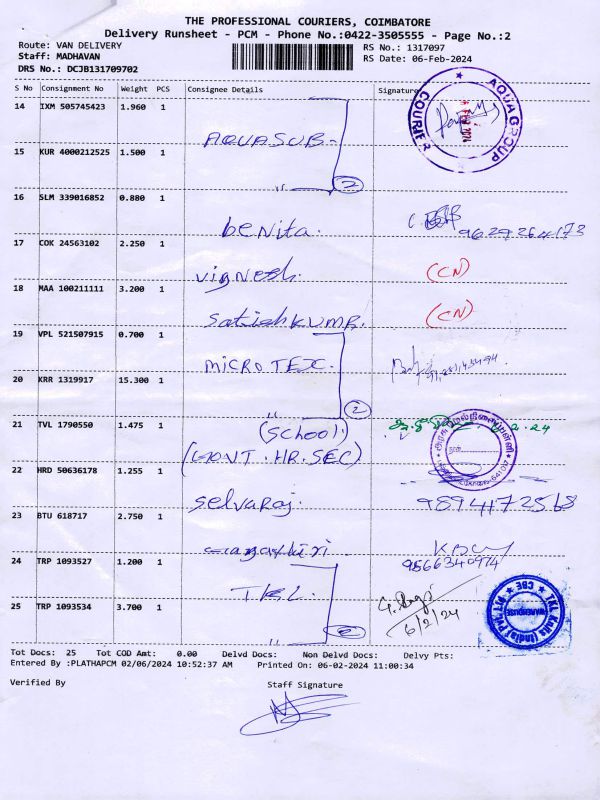 THE PROFESSIONAL COURIERS, COIMBATORE
Delivery Runsheet - PCM - Phone No.:0422-3505555 - Page No.:2
Route: VAN DELIVERY
RS No.: 1317097
Staff: MADHAVAN
RS Date: 06-Feb-2024
DRS No.: DCJB131709702
S No Consignment No Weight PCS Consignee Details Signature
14 IXM 505745423 1.960 1
AQUA GROUP
COURIER
AQUASUB-
15 KUR 4000212525 1.500 1
"
2
16 SLM 339016852 0.880 1
beNita.
9629264173
17 COK 24563102 2.250 1
vigNesh.
(CN)
18 MAA 100211111 3.200 1
SatishKUMR.
(CN)
19 VPL 521507915 0.700 1
MICROTEX.
20 KRR 1319917 15.300 1
"
2
21 TVL 1790550 1.475 1
(School)
2.24
(GOVT.HR.SEC)
22 HRD 50636178 1.255 1
Selvaraj.
9894172568
23 BTU 618717 2.750 1
9566340974
24 TRP 1093527 1.200 1
TKL.
25 TRP 1093534 3.700 1
6/2/24
TKL Knits (India) Pvt Ltd
WAREHOUSE
CBE
Tot Docs: 25 Tot COD Amt: 0.00 Delvd Docs: Non Delvd Docs: Delvy Pts:
Entered By :PLATHAPCM 02/06/2024 10:52:37 AM Printed On: 06-02-2024 11:00:34
Verified By
Staff Signature